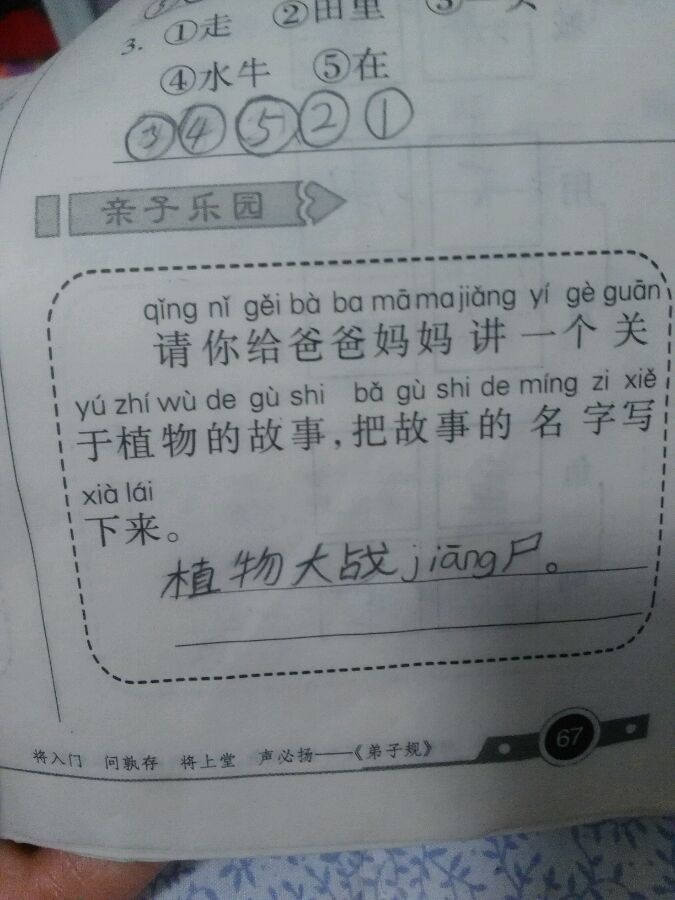 3. ①走 ②田里
④水牛 ⑤在
③④⑤②①
亲子乐园
qǐng nǐ gěi bà ba mā ma jiǎng yí gè guān
请你给爸爸妈妈讲一个关
yú zhí wù de gù shi bǎ gù shi de míng zi xiě
于植物的故事,把故事的名字写
xià lái
下来。
植物大战jiāng尸。
67
将入门 问孰存 将上堂 声必扬——《弟子规》